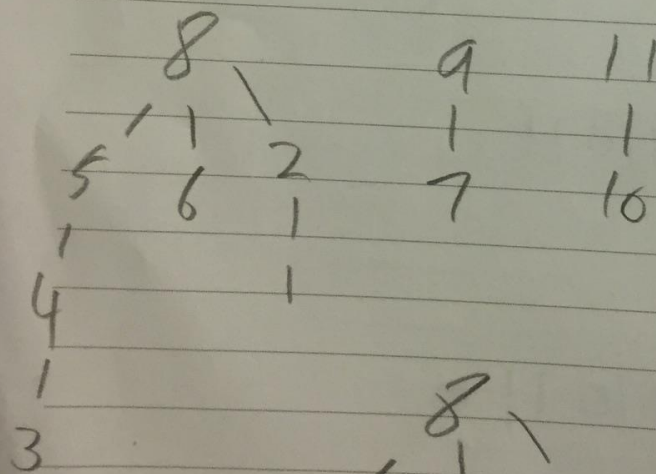 8 9 11
5 6 2 7 10
4 1
3 8